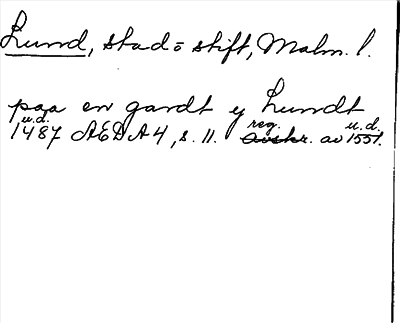 Lund, stad o stift, Malm. l.
paa en gardt y Lundt
u.d. reg. u.d.
1487 AEDA 4, s. 11. avskr. av 1551.